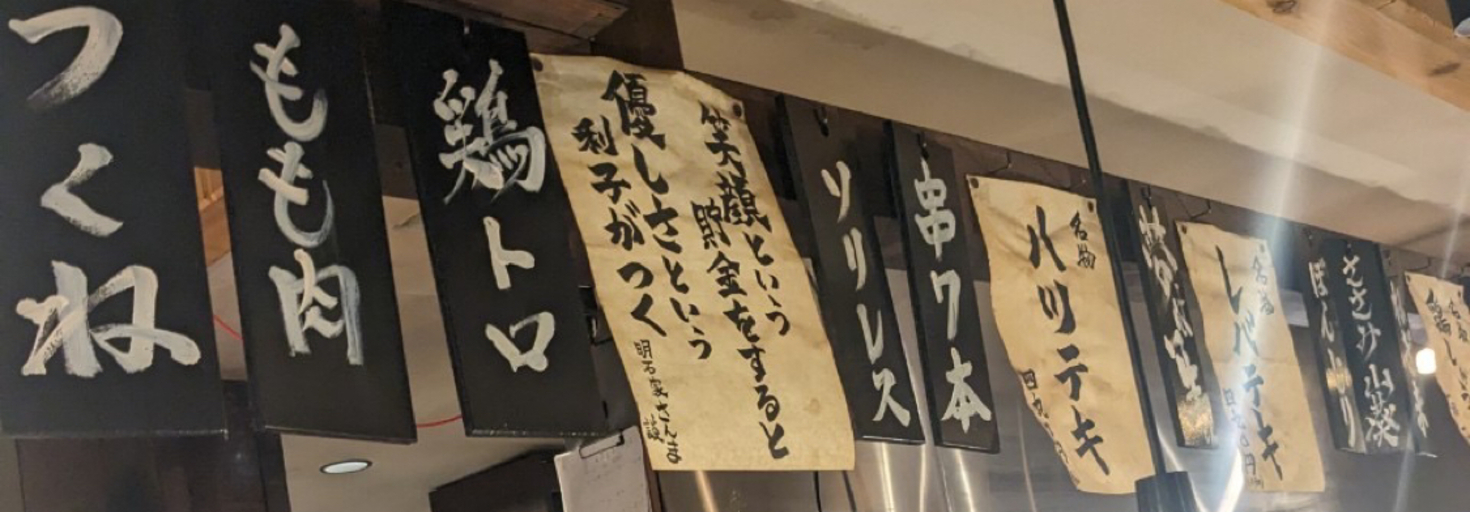 つくね
もも肉
鶏トロ
笑顔という
貯金をすると
優しさという
利子がつく
ソリレス
串7本
名物
ハツテキ
名物
レバテキ
ささみ山葵
ぼんじり